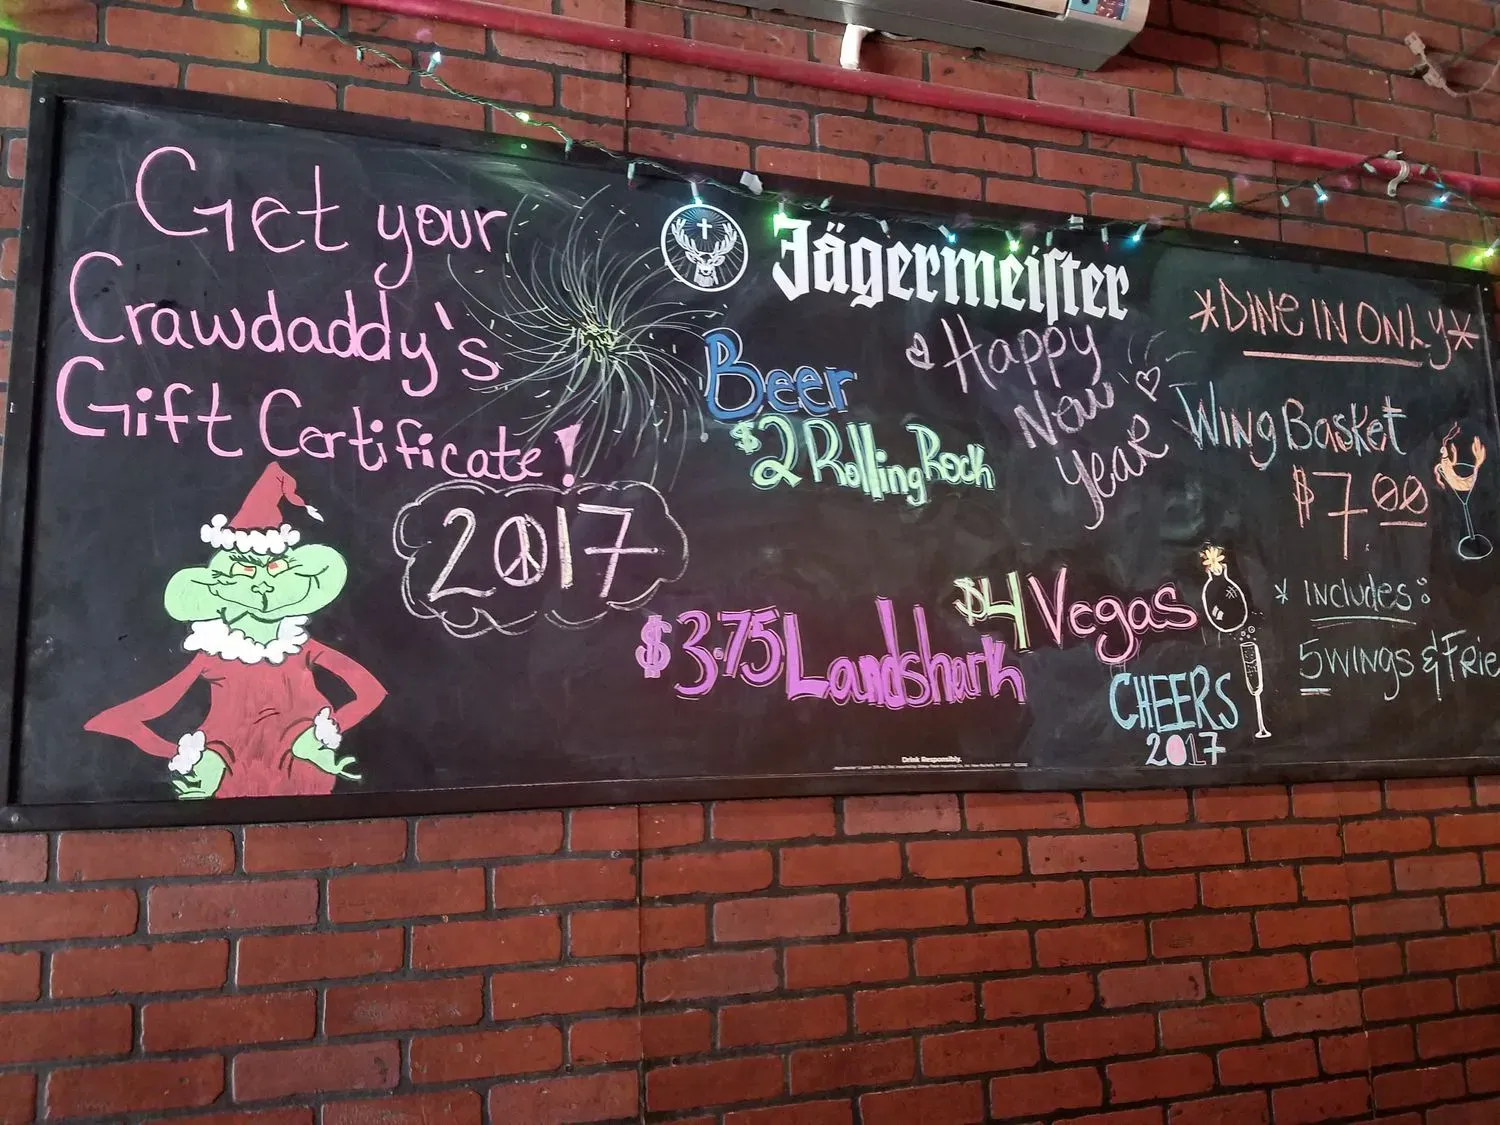 Get your
Crawdaddy's
Gift Certificate!
2017
Jägermeister
Beer
$2 Rolling Rock
a Happy
New
Year
$4 Vegas
$3.75 Landshark
CHEERS
2017
Drink Responsibly.
*DINE IN ONLY*
WING BASKET
$7.00
* INCLUDES:
5 WINGS & FRIE